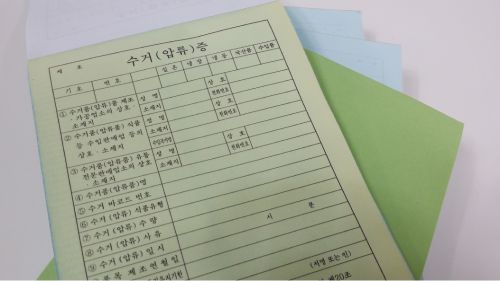 제 호
수거(압류)증
기호 번호 실온 냉장 냉동 국산품 수입품
① 수거품(압류)품 제조
· 가공업소의 상호
· 소재지
성명 상호
소재지 전화번호
② 수거품(압류품) 식품
등 수입판매업 등의
상호 · 소재지
성명 상호
소재지 전화번호
③ 수거품(압류품) 유통
전문판매업소의 상호
· 소재지
성명 상호
소재지 전화번호
④ 수거품(압류품)명
⑤ 수거 바코드 번호
⑥ 수거 (압류) 식품유형
⑦ 수거 (압류) 수량
⑧ 수거 (압류) 사유
⑨ 수거 (압류) 일시 시 분
품목 제조연월일
(서명 또는 인)
제20조